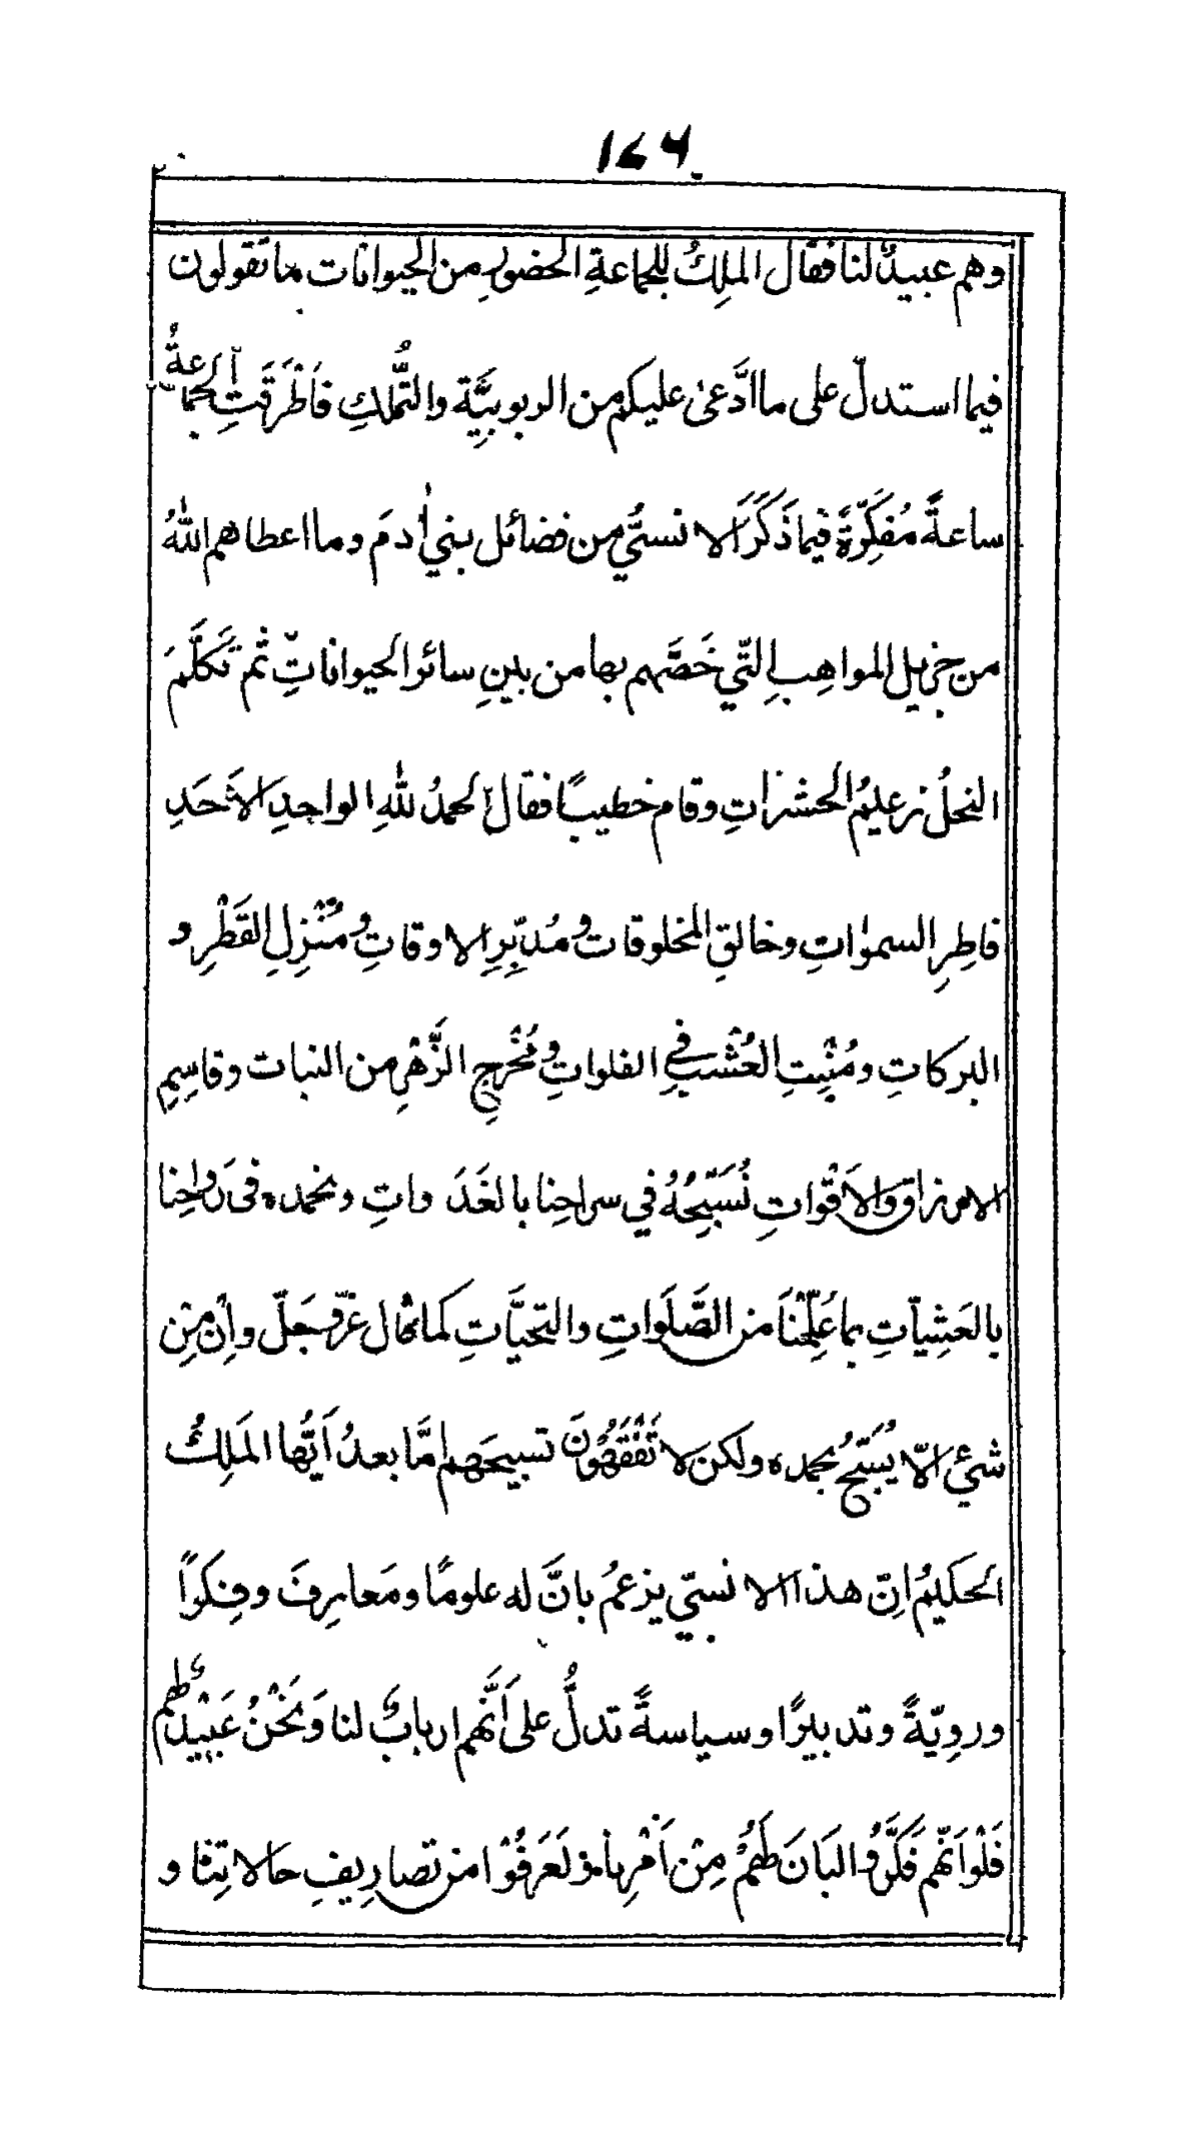 ۱۷۶
وهم عبيدٌ لنا فقال الملِكُ للجماعةِ الحضورِ من الحيوانات ما تقولون
فيما استدلّ على ما ادَّعىٰ عليكم من الربوبيَّة والتُّملكِ فَاَطْرَقَتِ الجماعةُ
ساعةً مُفكِّرَةً فيما ذَكَرَ الانسىُّ من فضائل بني اٰدمَ وما اعطاهم اللهُ
من جزيل المواهبِ الّتي خَصَّهم بها من بينِ سائر الحيواناتِ ثم تَكلَّمَ
النحلُ زعيمُ الحشراتِ وقام خطيبًا فقال الحمدُ للهِ الواحدِ الاَحَدِ
فاطِرِ السمٰواتِ وخالقِ المخلوقات ومُدبِّرِ الاوقاتِ ومُنْزِلِ القَطْرِ و
البركاتِ ومُنْبِتِ العُشْبِ في الفلواتِ ومُخْرِجِ الزَّهْرِ من النبات وقاسِمِ
الارزاق والاَقْواتِ نُسَبِّحُهُ في سراحِنا بالغَدَواتِ ونحمده فى رَواحِنا
بالعَشِيآتِ بما عُلِّمْنَا من الصَّلَواتِ والتحيَّاتِ كما قال عزّوجَلّ واِنْ مِن
شيئٍ الاّ يُسَبّحُ بحمده ولكن لا تَفْقَهُونَ تسبيحَهم امَّا بعدُ اَيّها المَلِكُ
الحكيمُ اِنّ هذا الانسيّ يزعمُ بانَّ له علومًا ومَعارِفَ وفِكرًا
وروِيّةً وتدبيرًا وسياسةً تدلُّ على اَنَّهم اربابٌ لنا وَنَحْنُ عَبِيْدٌ لهم
فَلَوْ اَنّهم فَكَّرُوا لبَانَ لَهُمْ مِنْ اَمْرِنا ولَعَرَفُوْا من تصاريفِ حالاتِنا و